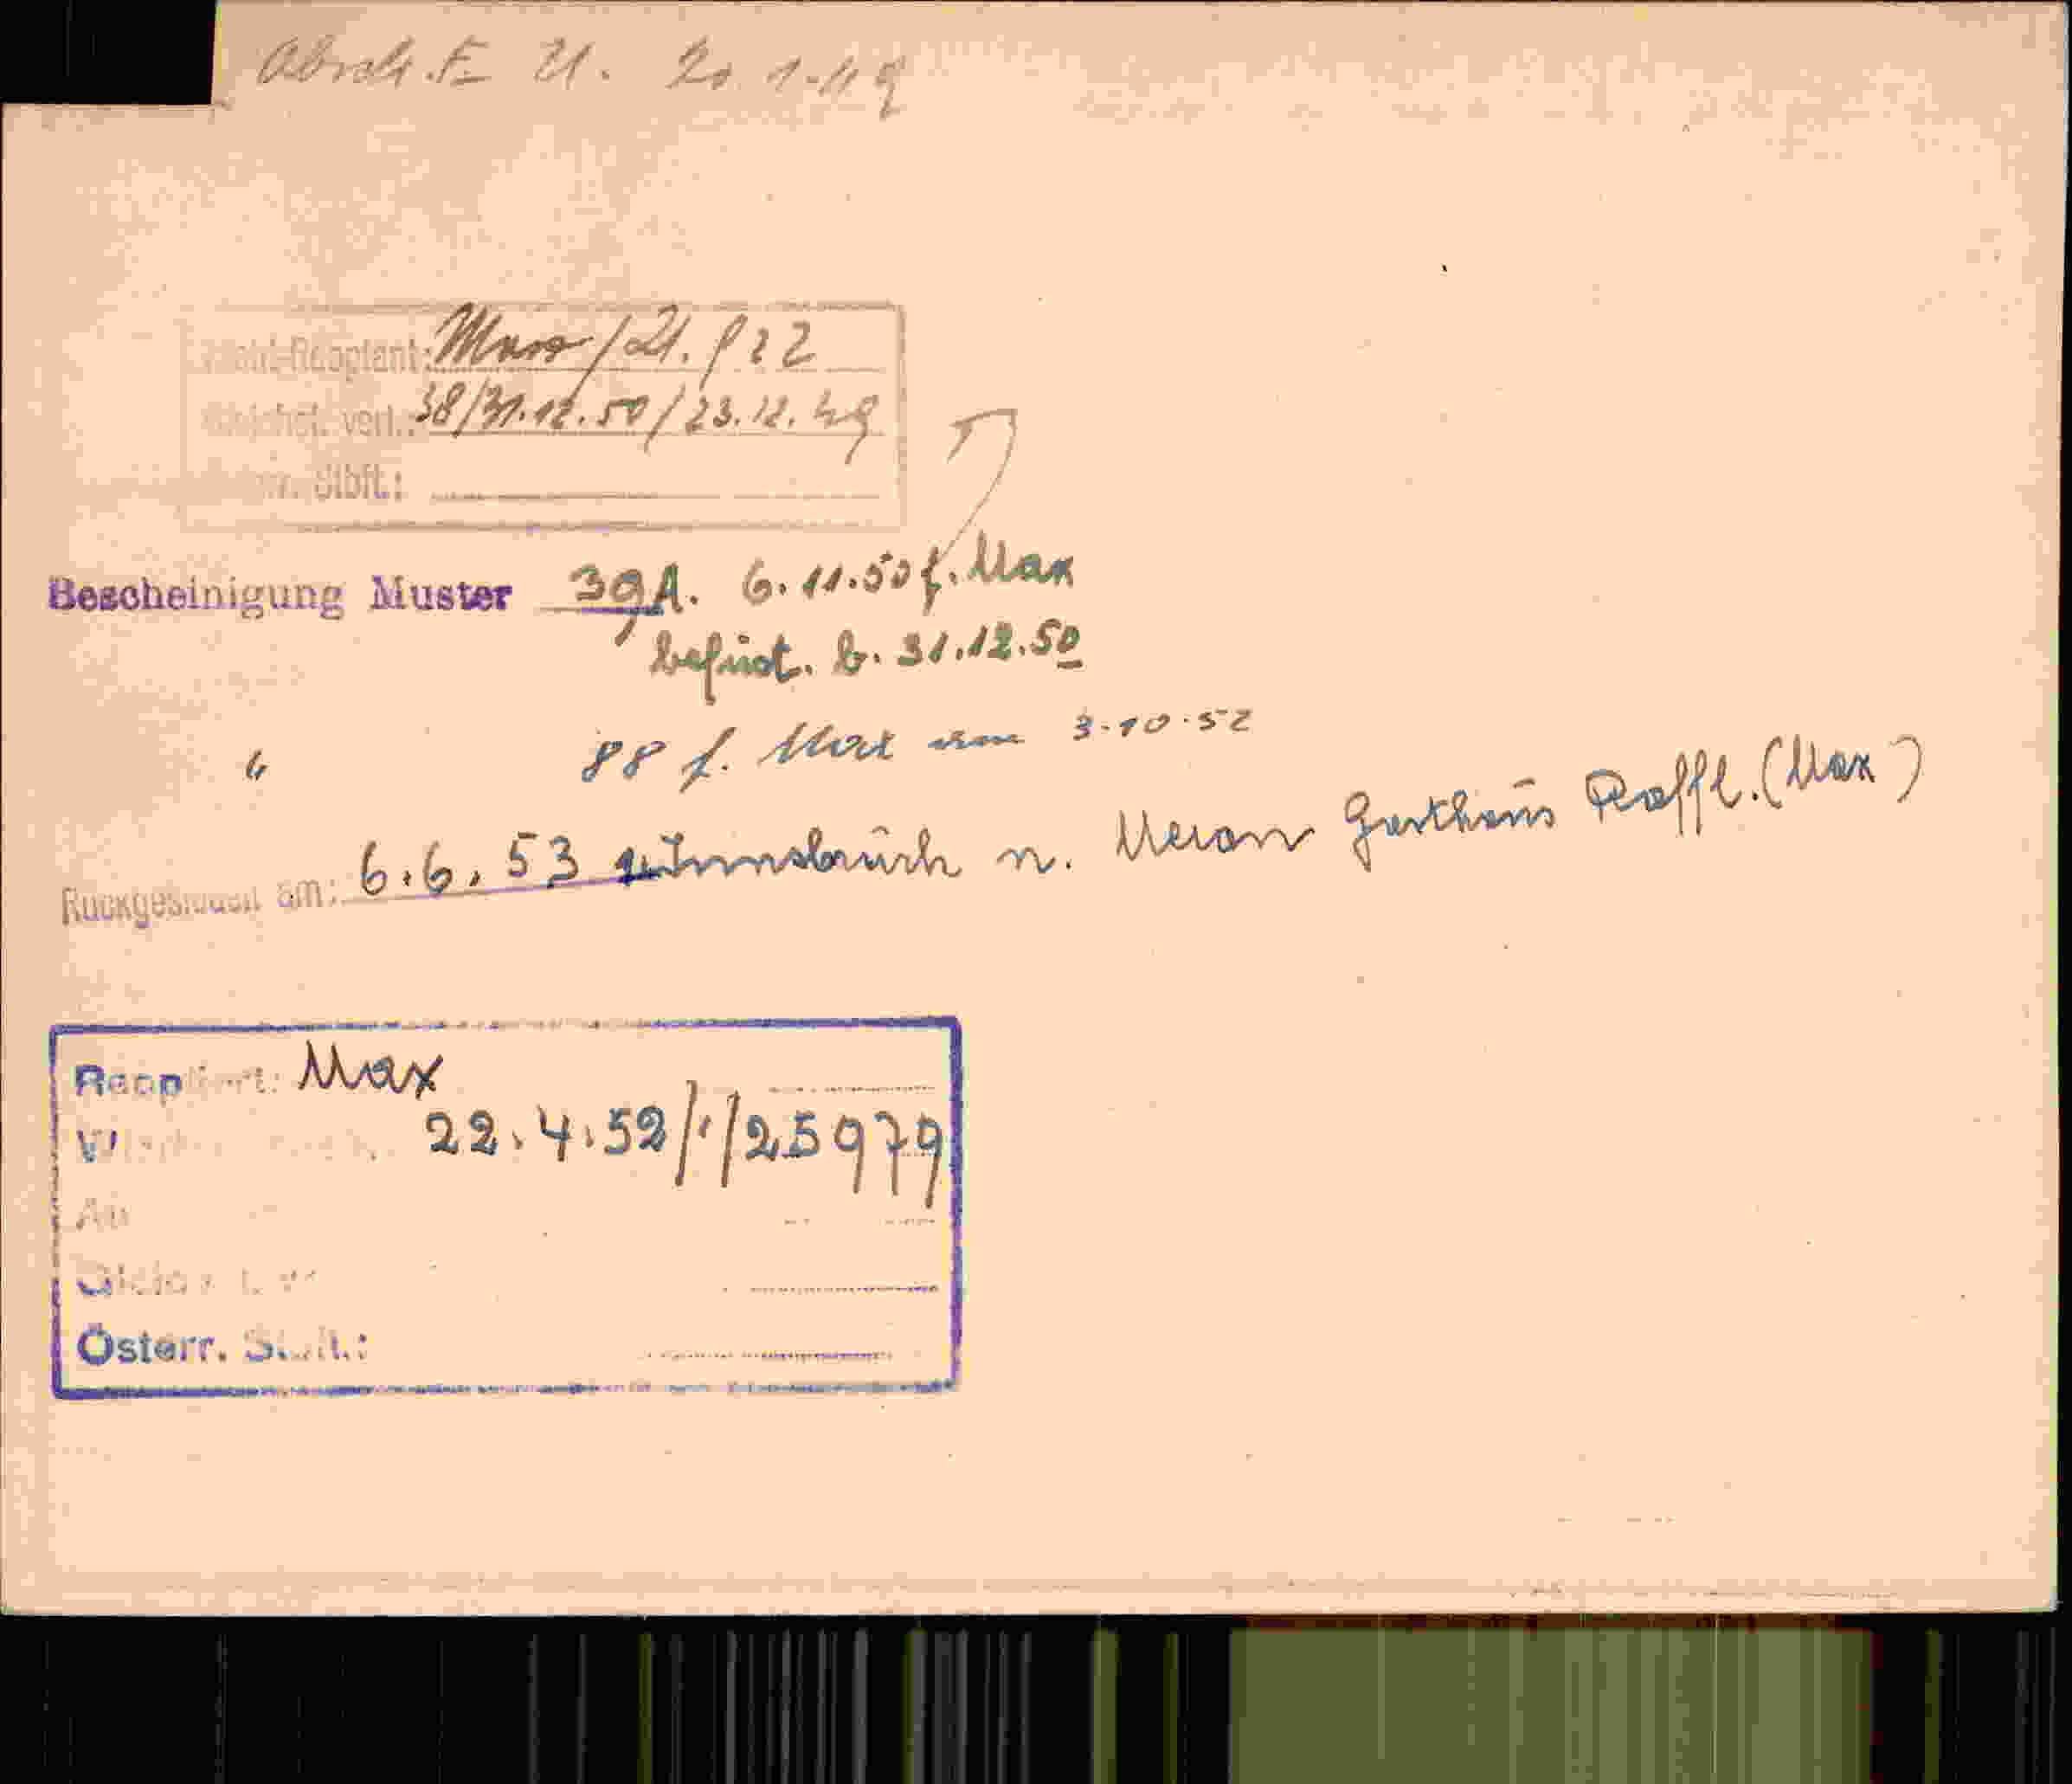 Absch. F. 21. 20. 1. 49
-Reoptant: Max / 21. / 22
verl.: 38/31.12.50/23.12.49
Stbft.:
Bescheinigung Muster 39A. 6.11.50 f. Max
befrist. b. 31.12.50
" 88 f. Max am 3.10.52
Rückgesiedelt am: 6.6.53 v. Innsbruck n. Meran Gasthaus Raffl. (Max)
Reoptiert: Max
22.4.52/1/25979
Österr. St.